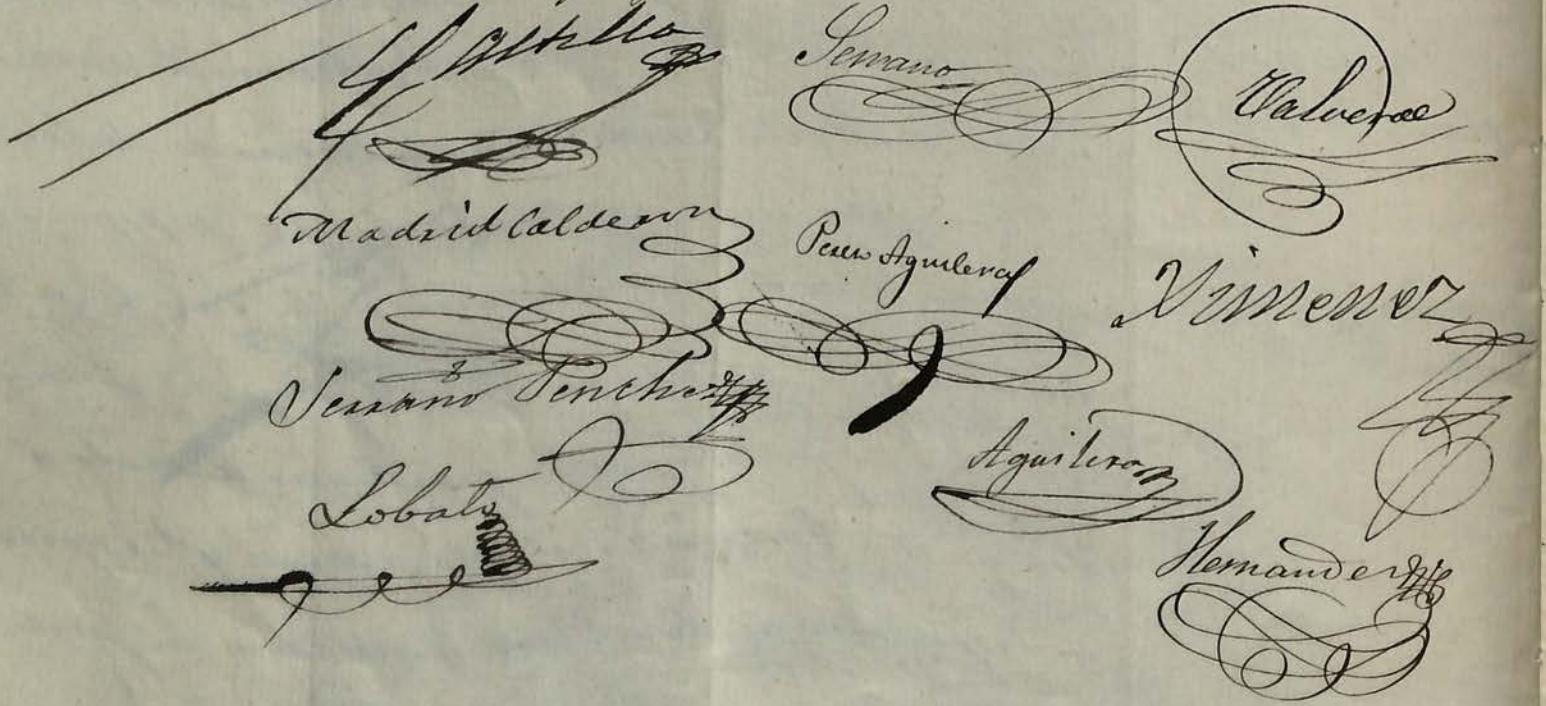 Castillo
Serrano
Valverde
Madrid Calderon
Perez Aguilera
Ximenez
Serrano
Aguilera
Lobato
Hernandez